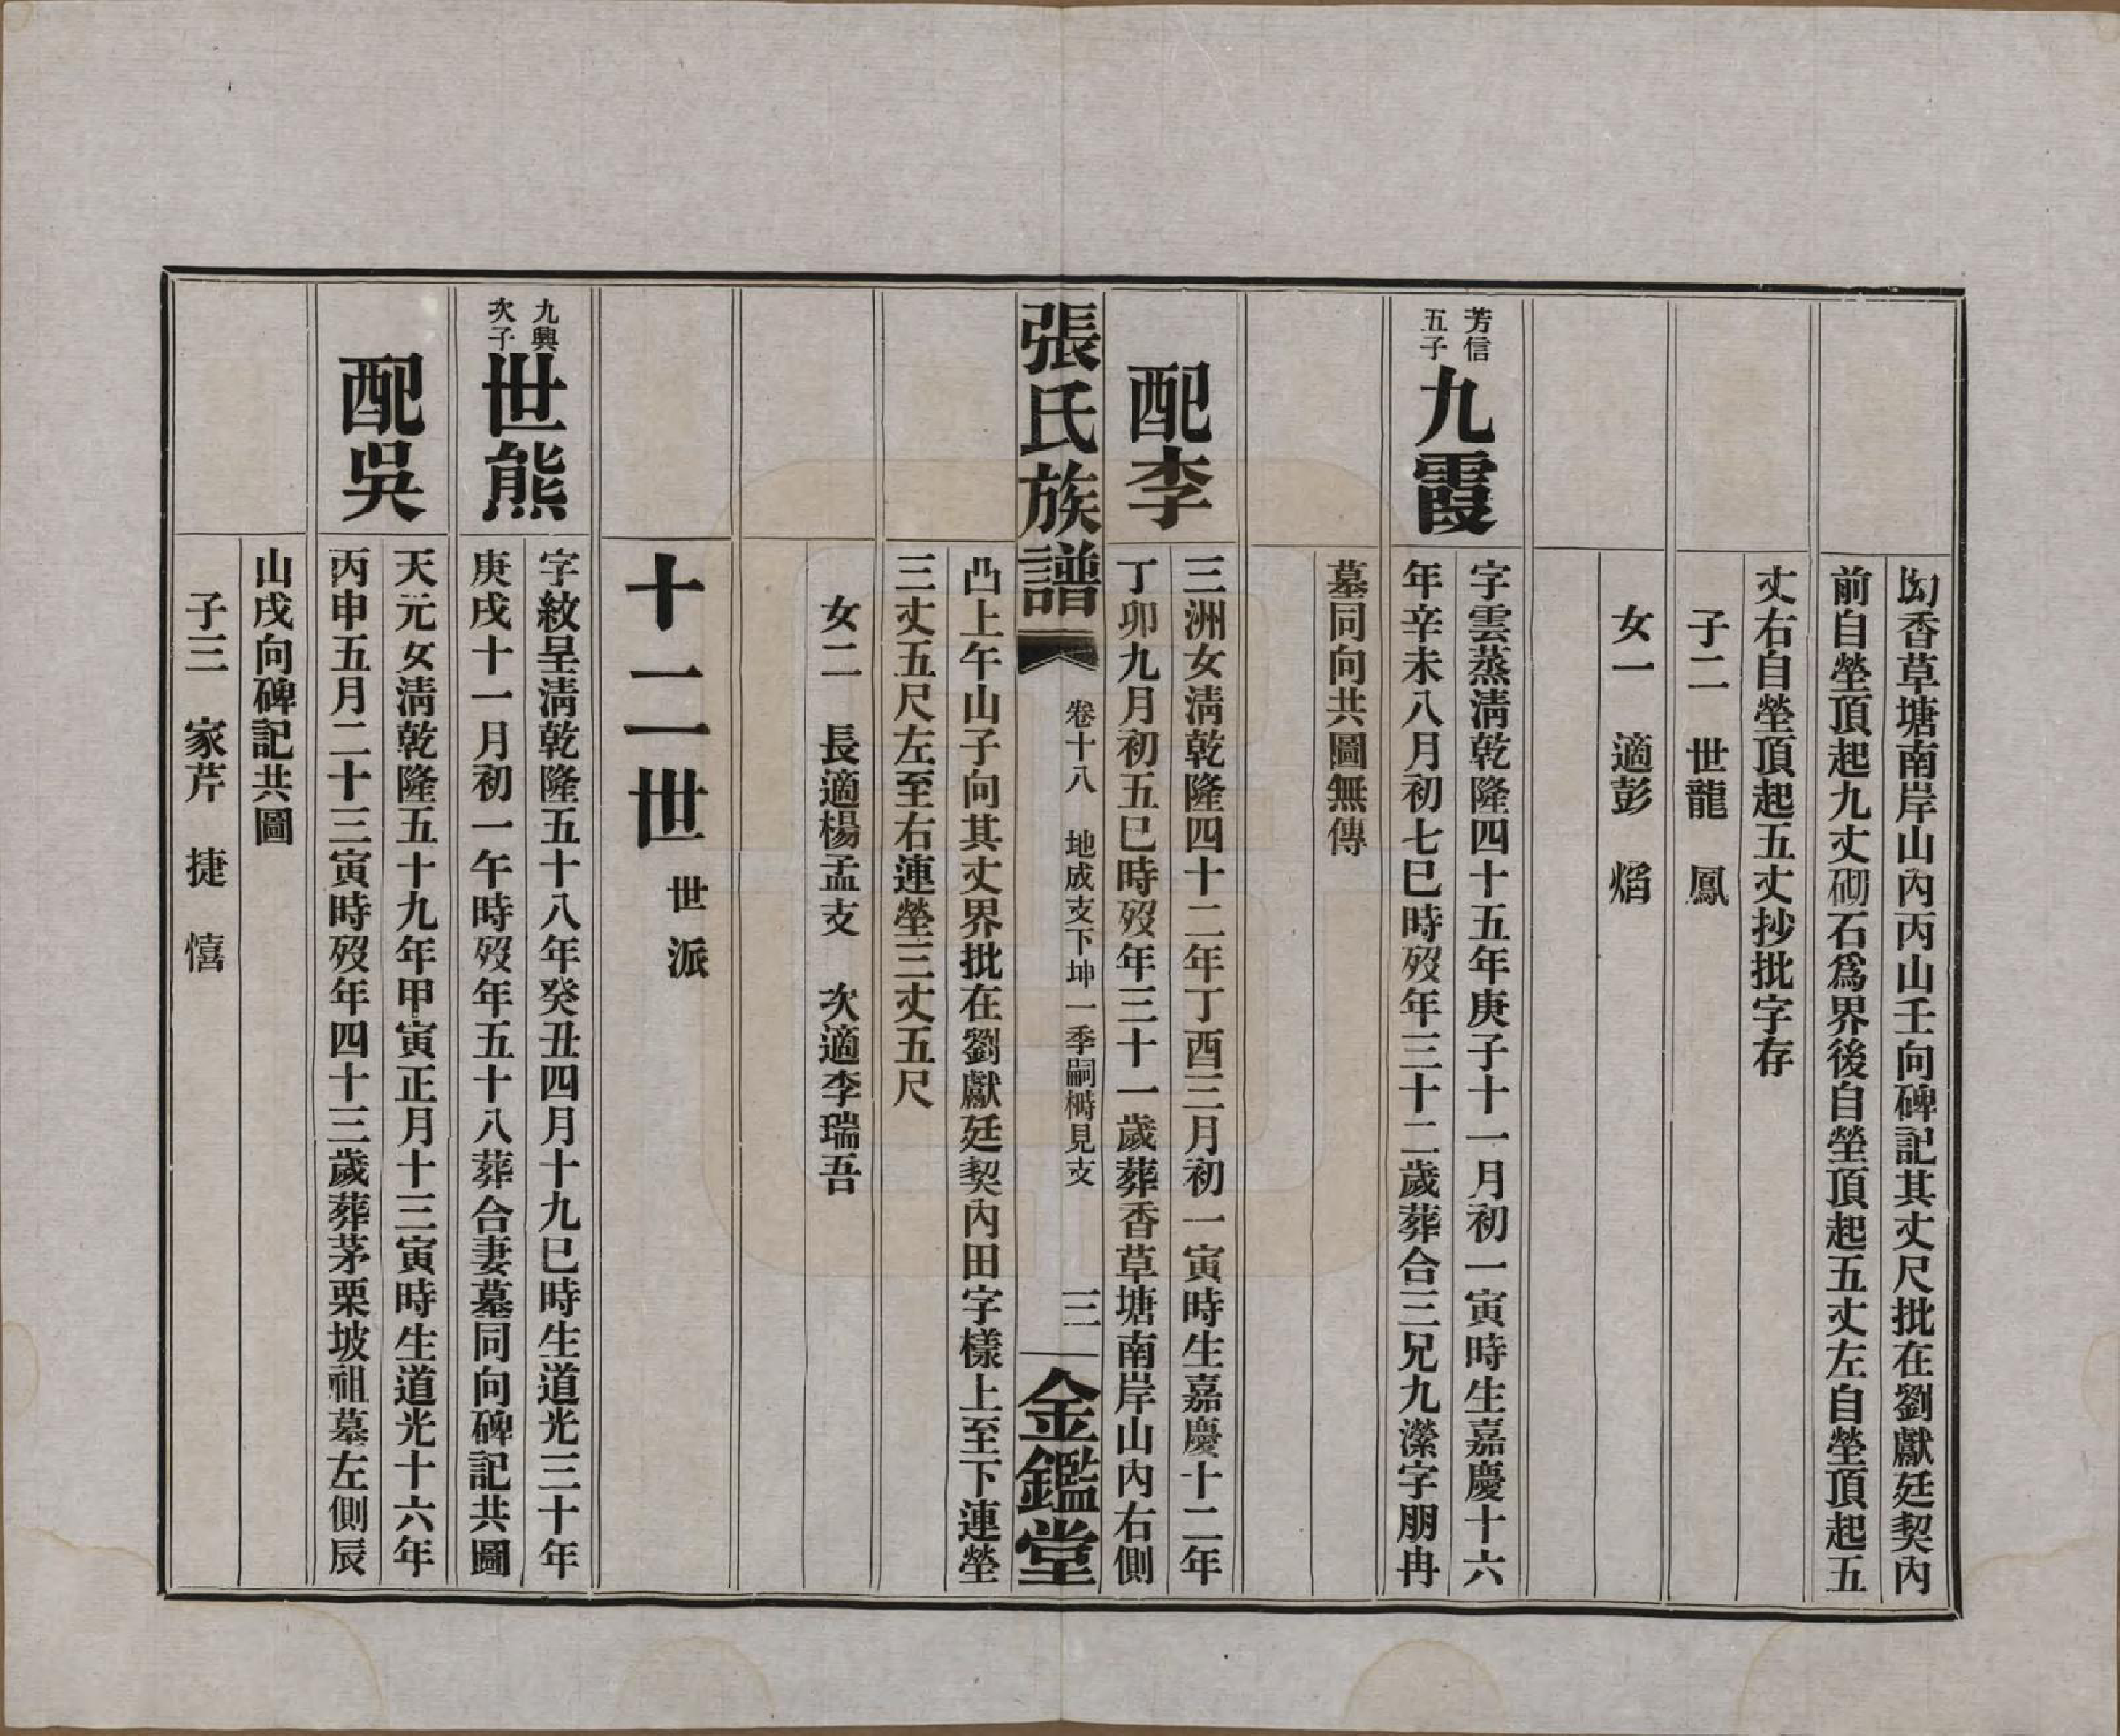 凹香草塘南岸山內丙山壬向碑記其丈尺批在劉獻廷契內
前自塋頂起九丈砌石爲界後自塋頂起五丈左自塋頂起五
丈右自塋頂起五丈抄批字存
子二　世龍　鳳
女一　適彭　熖
芳信五子
九霞
字雲蒸淸乾隆四十五年庚子十一月初一寅時生嘉慶十六
年辛未八月初七巳時歿年三十二歲葬合三兄九瀠字朋冉
墓同向共圖無傳
配李
三洲女淸乾隆四十二年丁酉三月初一寅時生嘉慶十二年
丁卯九月初五巳時歿年三十一歲葬香草塘南岸山內右側
張氏族譜　卷十八　地成支下坤一季嗣橳見支　三　金鑑堂
凸上午山子向其丈界批在劉獻廷契內田字樣上至下連塋
三丈五尺左至右連塋三丈五尺
女二　長適楊孟支　次適李瑞吾
十二世　世派
九興次子
世熊
字紋呈淸乾隆五十八年癸丑四月十九巳時生道光三十年
庚戌十一月初一午時歿年五十八葬合妻墓同向碑記共圖
配吳
天元女淸乾隆五十九年甲寅正月十三寅時生道光十六年
丙申五月二十三寅時歿年四十三歲葬茅栗坡祖墓左側辰
山戌向碑記共圖
子三　家芹　捷　僖